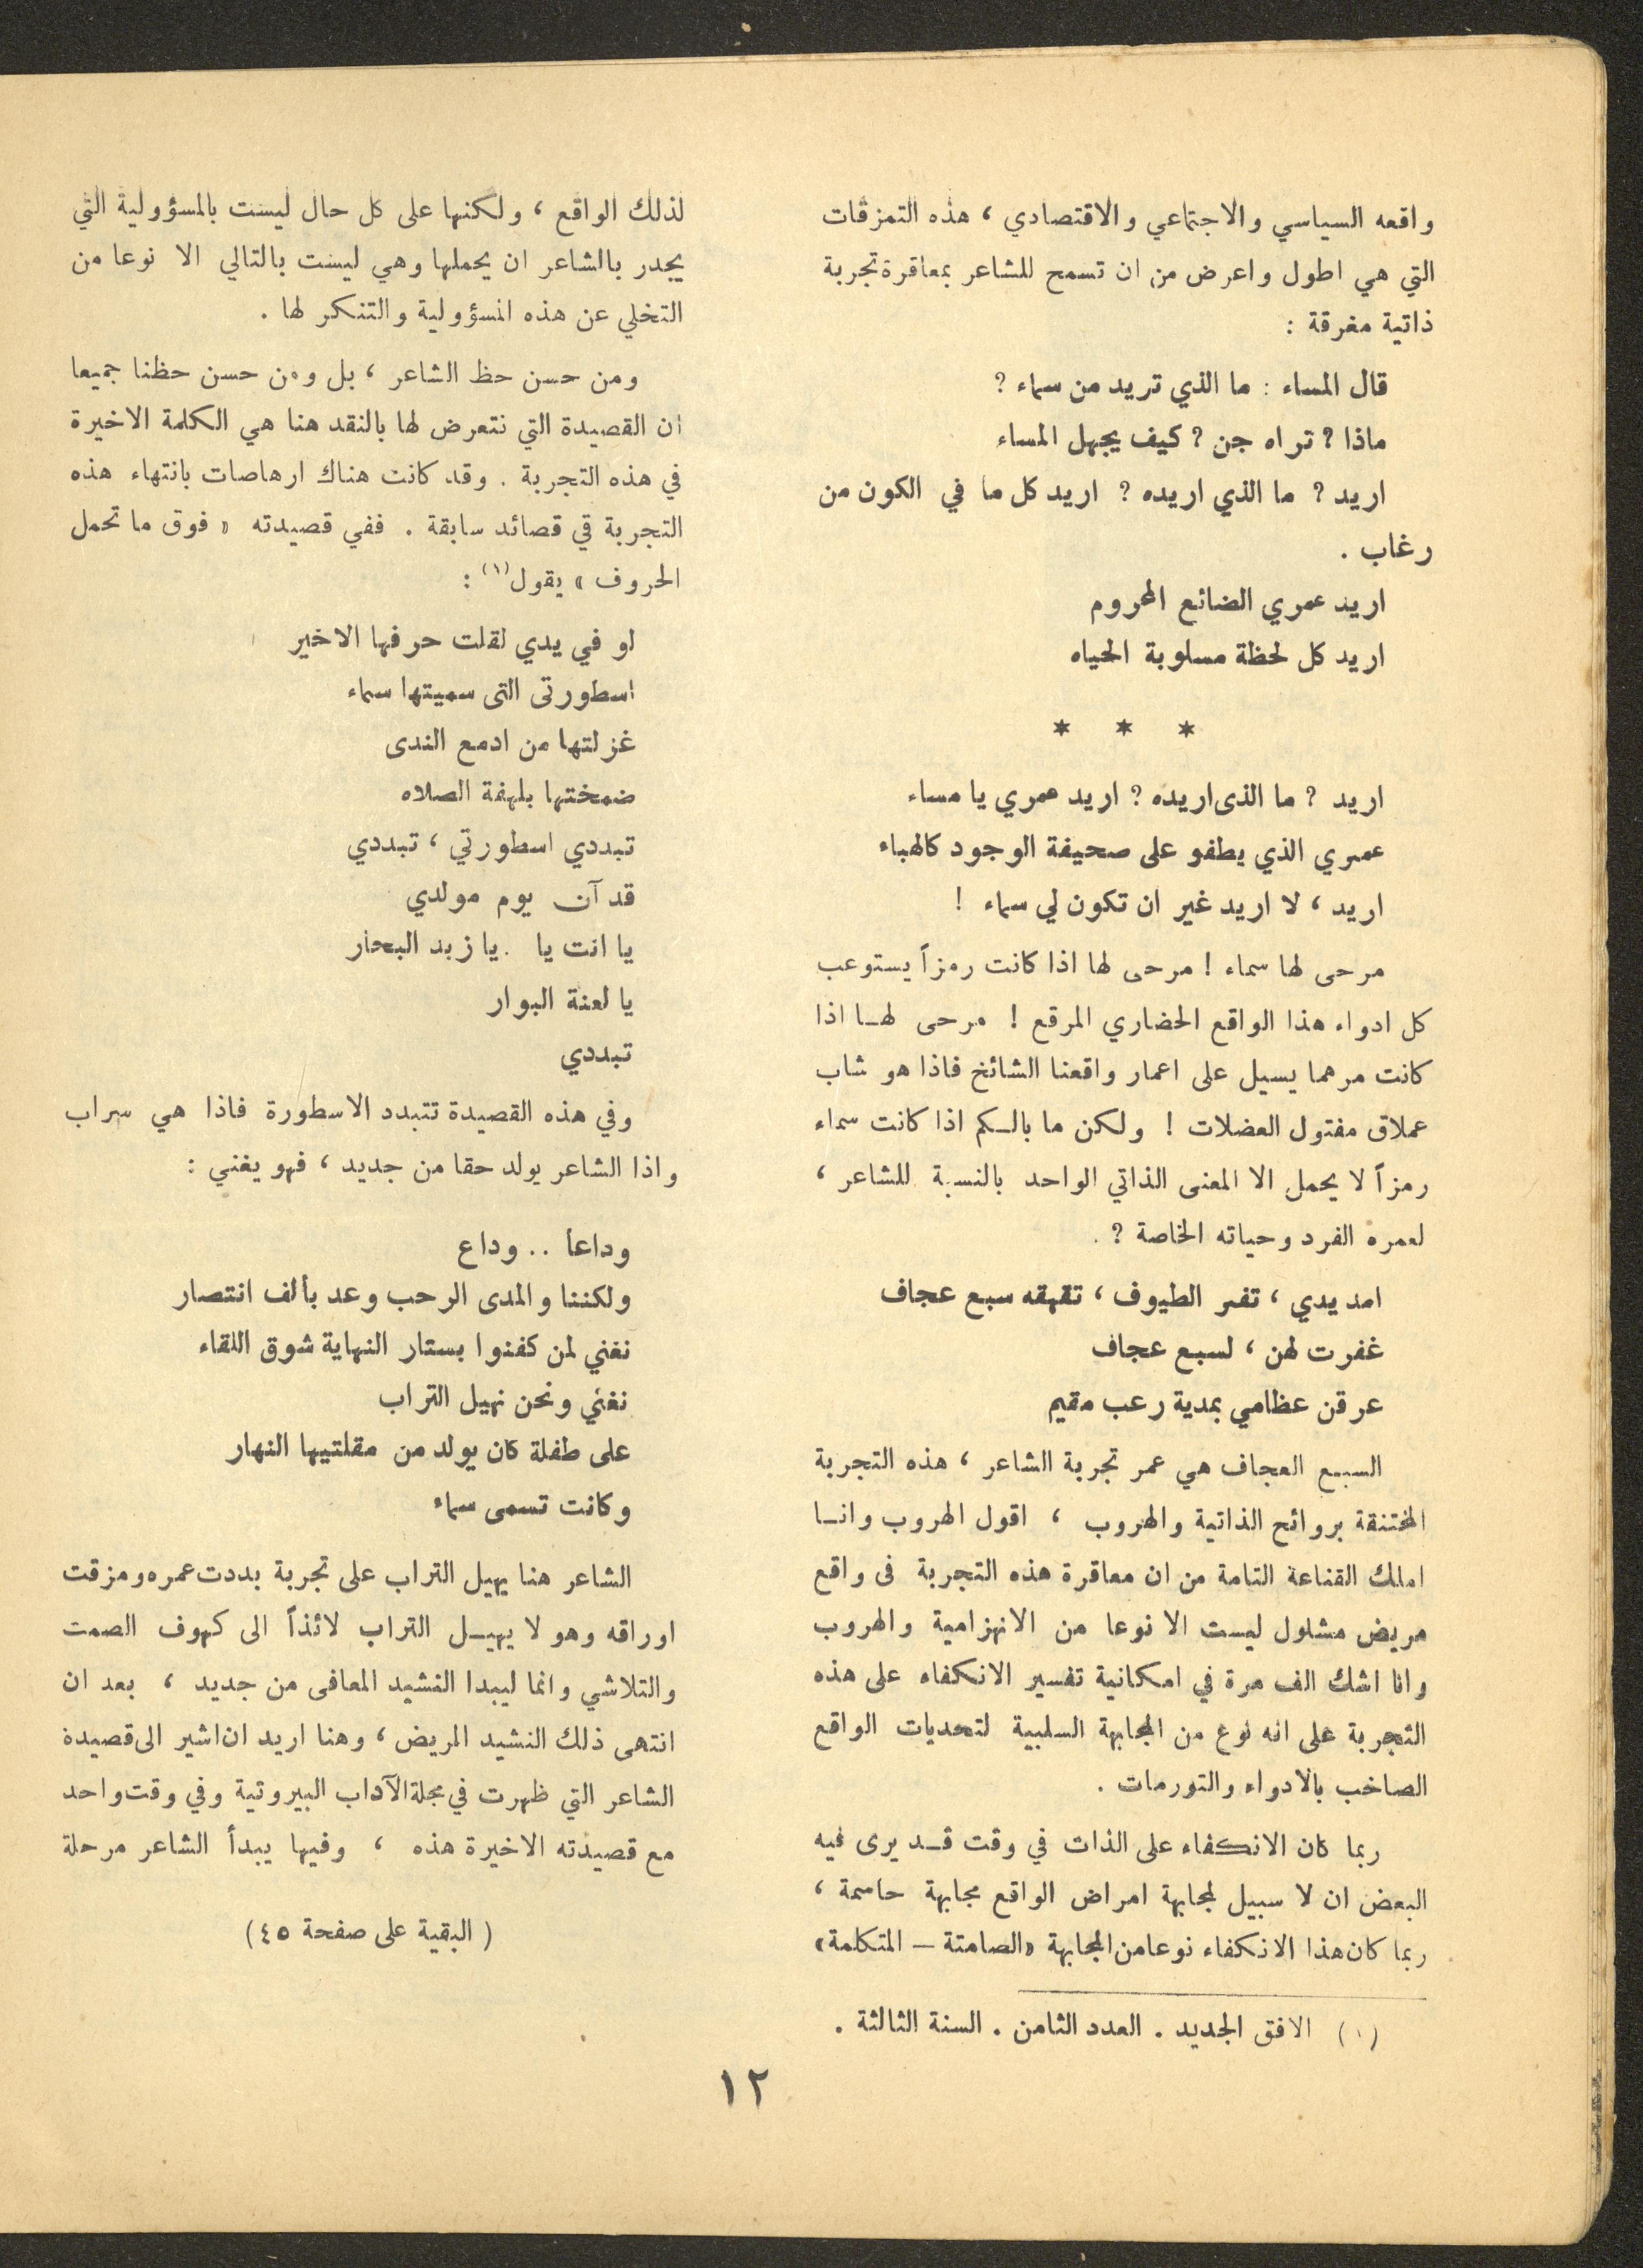 واقعه السياسي والاجتماعي والاقتصادي ، هذه التمزقات
التي هي اطول واعرض من ان تسمح للشاعر بمعاقرة تجربة
ذاتية مغرقة :
قال المساء : ما الذي تريد من سماء ?
ماذا ? تراه جن ? كيف يجهل المساء
اريد ? ما الذي اريده ? اريد كل ما في الكون من
رغاب .
اريد عمري الضائع المحروم
اريد كل لحظة مسلوبة الحياه
* * *
اريد ? ما الذى اريده ? اريد عمري يا مساء
عمري الذي يطفو على صحيفة الوجود كالهباء
اريد ، لا اريد غير ان تكون لي سماء !
مرحى لها سماء ! مرحى لها اذا كانت رمزاً يستوعب
كل ادواء هذا الواقع الحضاري المرقع ! مرحى لهـا اذا
كانت مرهما يسيل على اعمار واقعنا الشائخ فاذا هو شاب
عملاق مفتول العضلات ! ولكن ما بالـكم اذا كانت سماء
رمزاً لا يحمل الا المعنى الذاتي الواحد بالنسبة للشاعر ،
لعمره الفرد وحياته الخاصة ? .
امد يدي ، تفر الطيوف ، تقهقه سبع عجاف
غفرت لهن ، لسبع عجاف
عرقن عظامي بمدية رعب مقيم
السبع العجاف هي عمر تجربة الشاعر ، هذه التجربة
المختنقة بروائح الذاتية والهروب ، اقول الهروب وانـا
املك القناعة التامة من ان معاقرة هذه التجربة فى واقع
مريض مشلول ليست الا نوعا من الانهزامية والهروب
وانا اشك الف مرة في امكانية تفسير الانكفاء على هذه
التجربة على انه نوع من المجابهة السلبية لتحديات الواقع
الصاخب بالادواء والتورمات .
ربما كان الانكفاء على الذات في وقت قـد يرى فيه
البعض ان لا سبيل لمجابهة امراض الواقع مجابهة حاسمة ،
ربما كان هذا الانكفاء نوعا من المجابهة «الصامتة – المتكلمة»
لذلك الواقع ، ولكنها على كل حال ليست بالمسؤولية التي
يجدر بالشاعر ان يحملها وهي ليست بالتالي الا نوعا من
التخلي عن هذه المسؤولية والتنكر لها .
ومن حسن حظ الشاعر ، بل ومن حسن حظنا جميعا
ان القصيدة التي نتعرض لها بالنقد هنا هي الكلمة الاخيرة
في هذه التجربة . وقد كانت هناك ارهاصات بانتهاء هذه
التجربة قي قصائد سابقة . ففي قصيدته « فوق ما تحمل
الحروف » يقول (١) :
لو في يدي لقلت حرفها الاخير
اسطورتى التى سميتها سماء
غزلتها من ادمع الندى
ضمختها بلهفة الصلاه
تبددي اسطورتي ، تبددي
قد آن يوم مولدي
يا انت يا . يا زبد البحار
يا لعنة البوار
تبددي
وفي هذه القصيدة تتبدد الاسطورة فاذا هي سراب
واذا الشاعر يولد حقا من جديد ، فهو يغني :
وداعا .. وداع
ولكننا والمدى الرحب وعد بألف انتصار
نغني لمن كفنوا بستار النهاية شوق اللقاء
نغني ونحن نهيل التراب
على طفلة كان يولد من مقلتيها النهار
وكانت تسمى سماء
الشاعر هنا يهيل التراب على تجربة بددت عمره ومزقت
اوراقه وهو لا يهيـل التراب لائذاً الى كهوف الصمت
والتلاشي وانما ليبدا النشيد المعافى من جديد ، بعد ان
انتهى ذلك النشيد المريض ، وهنا اريد ان اشير الى قصيدة
الشاعر التي ظهرت في مجلة الآداب البيروتية وفي وقت واحد
مع قصيدته الاخيرة هذه ، وفيها يبدأ الشاعر مرحلة
( البقية على صفحة ٤٥ )
(١) الافق الجديد . العدد الثامن . السنة الثالثة .
١٢